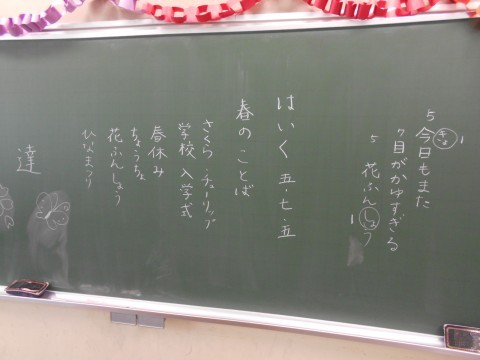 5 今日もまた
きょ 1
7 目がかゆすぎる
5 花ふんしょう
1
はいく 五・七・五
春のことば
さくら・チューリップ
学校 入学式
春休み
ちょうちょ
花ふんしょう
ひなまつり
達